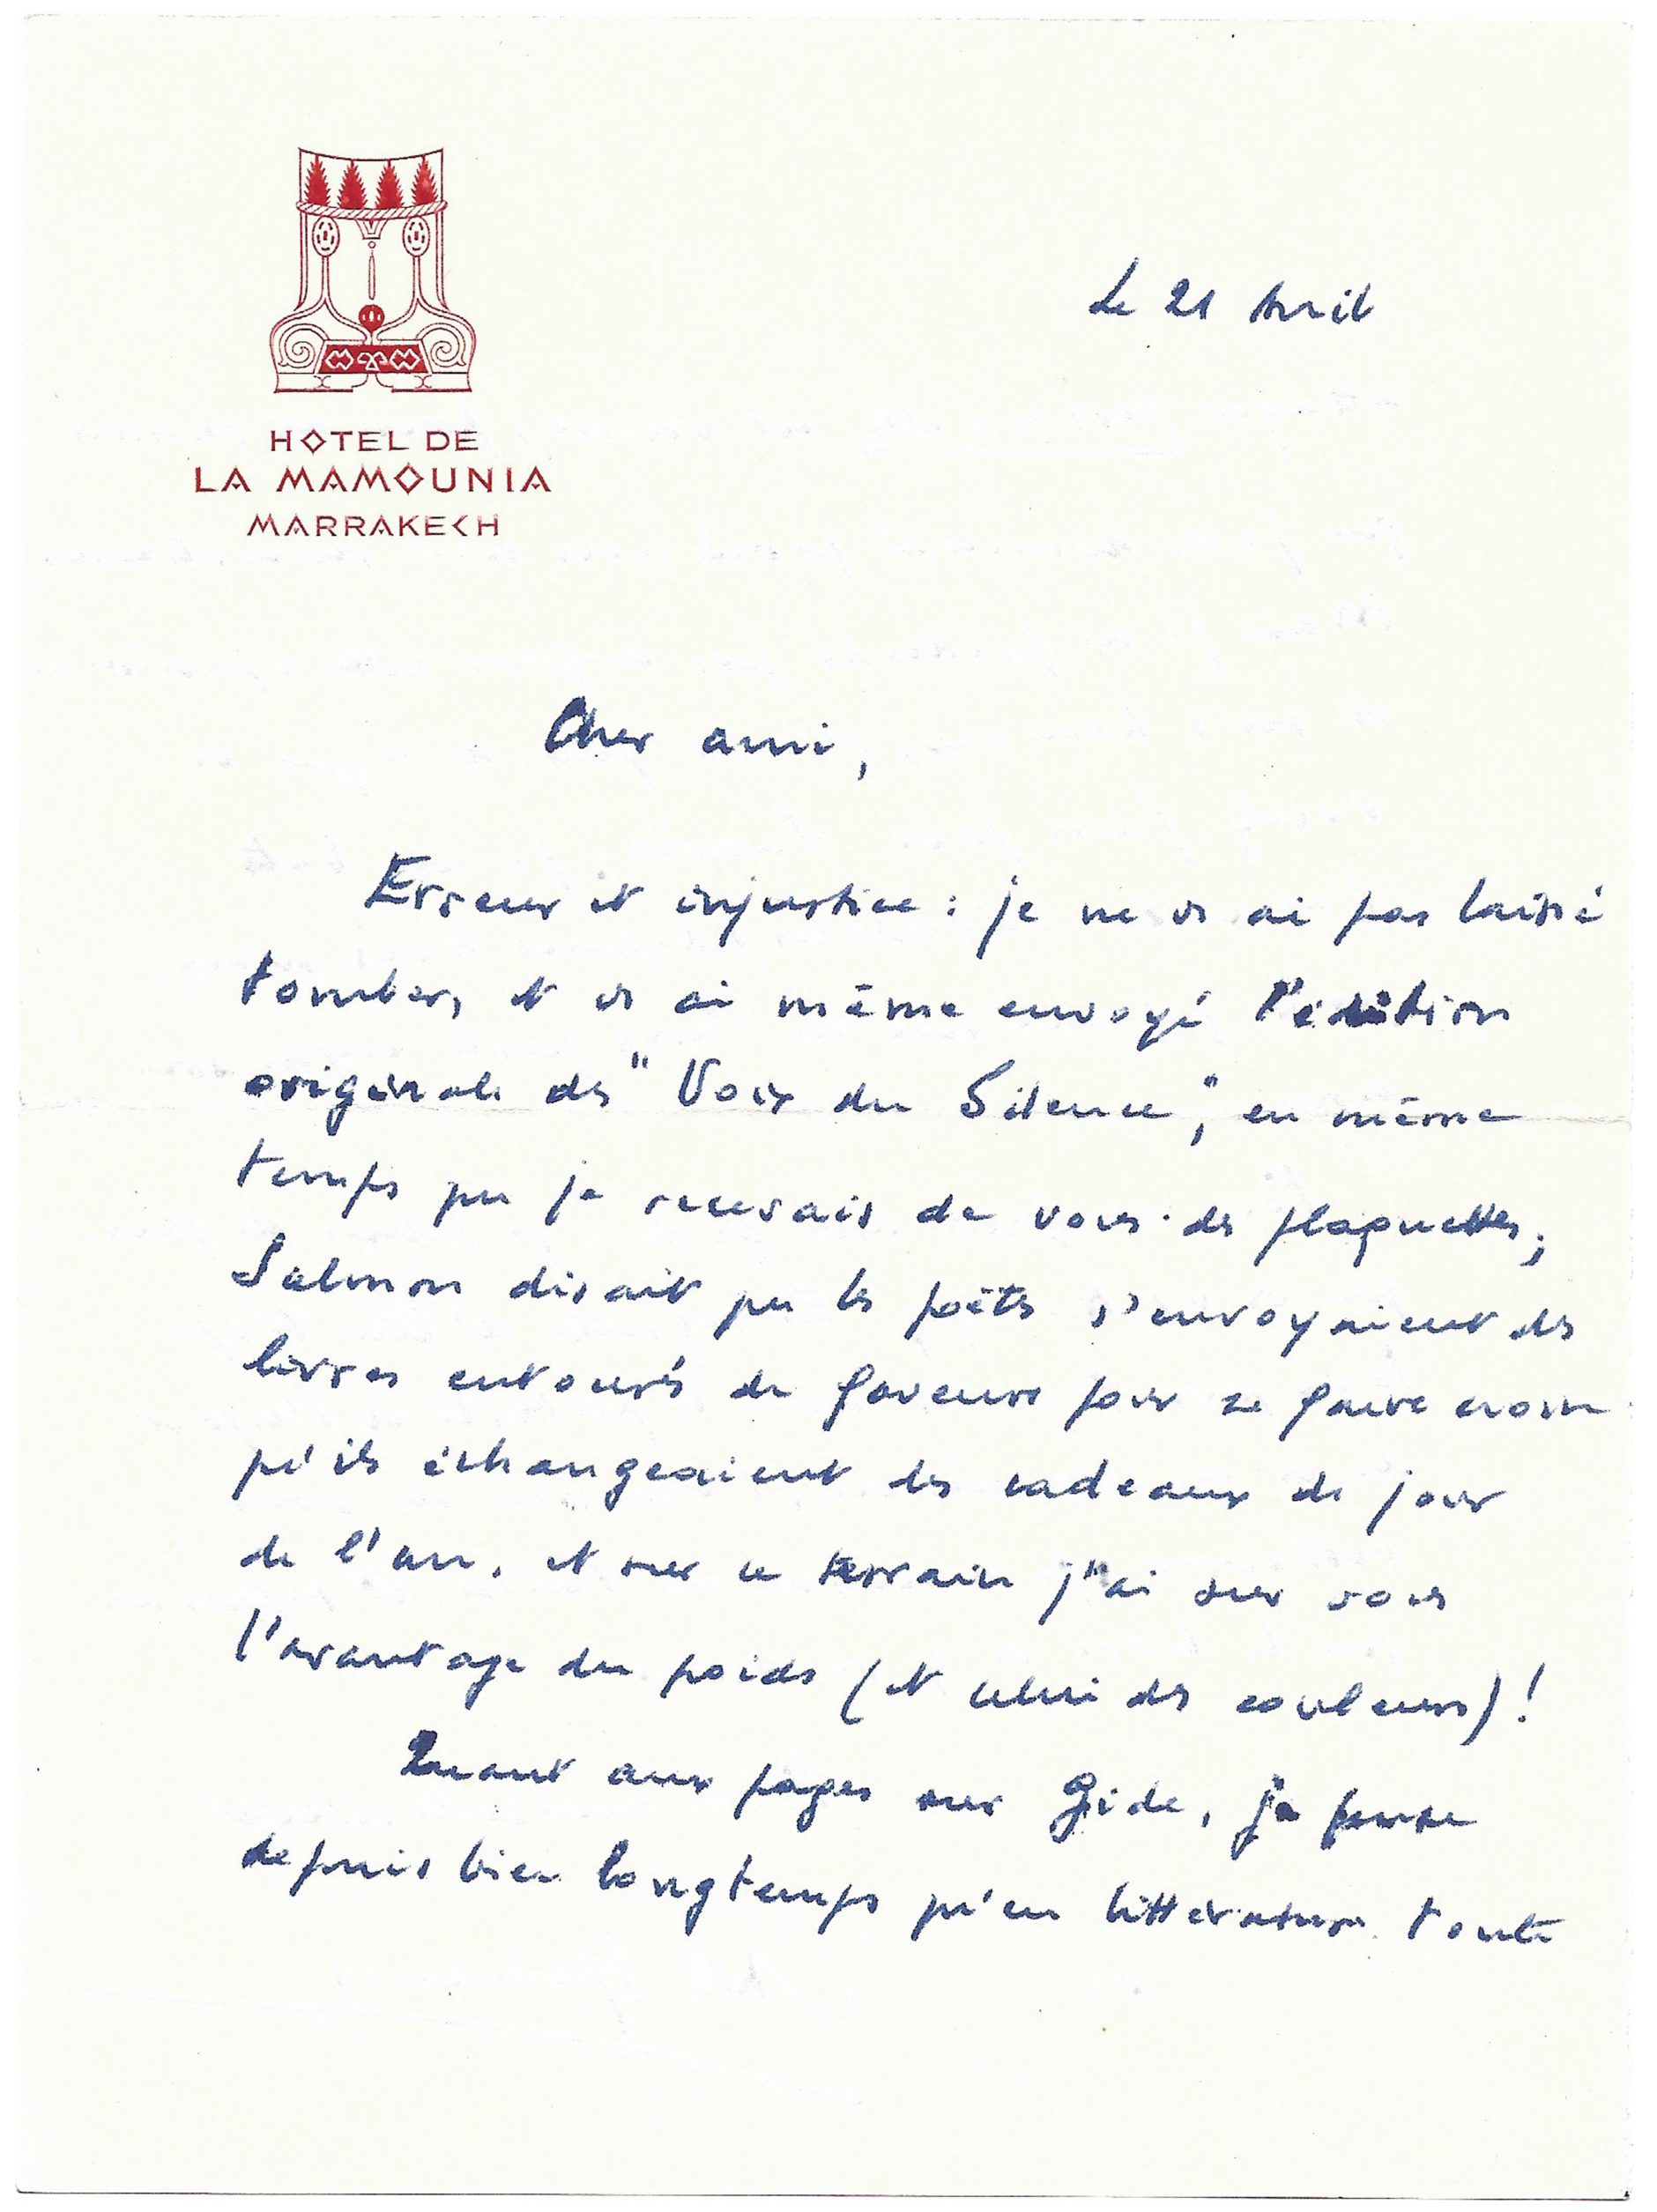 HOTEL DE
LA MAMOUNIA
MARRAKECH
Le 21 Avril
Cher ami,
Erreur et injustice : je ne vs ai pas laissé
tomber, et vs ai même envoyé l'édition
originale des "Voix du Silence", en même
temps que je recevais de vous des plaquettes ;
Salmon disait que les poètes s'envoyaient des
livres entourés de faveurs pour se faire croire
qu'ils échangeaient des cadeaux de jour
de l'an, et sur ce terrain j'ai sur vous
l'avantage du poids (et celui des couleurs) !
Quant aux pages sur Gide, je pense
depuis bien longtemps qu'en littérature toute